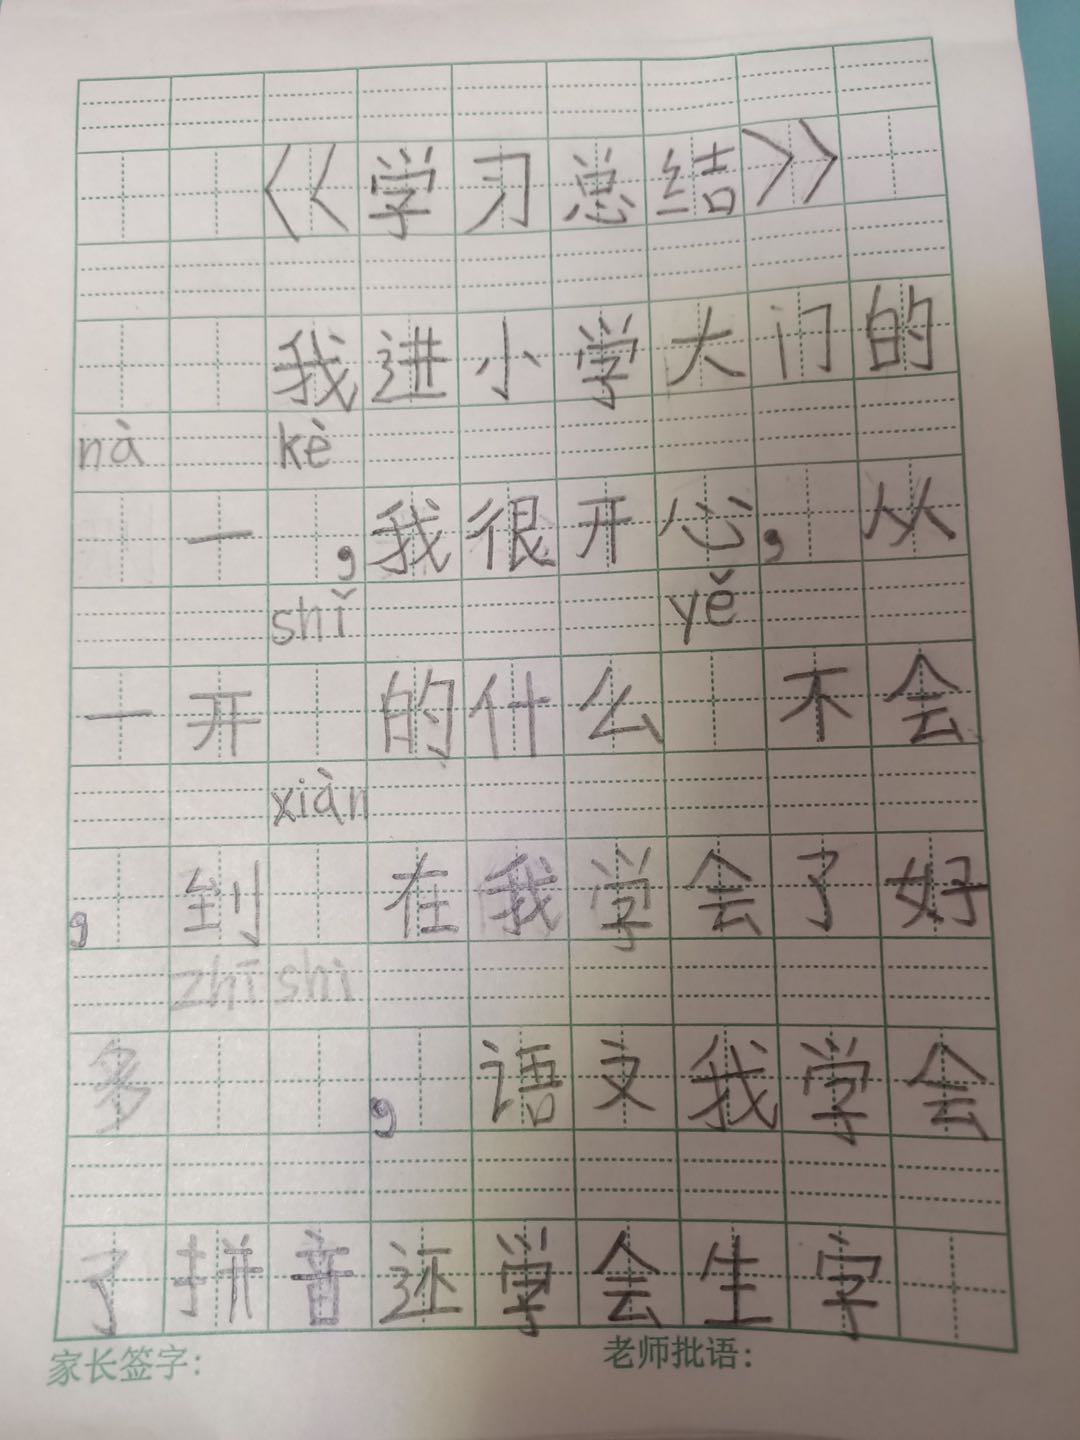 《学习总结》
我进小学大门的
nà kè
一,我很开心,从
shǐ yě
一开的什么不会
xiàn
,到在我学会了好
zhī shi
多,语文我学会
了拼音还学会生字
家长签字: 老师批语: